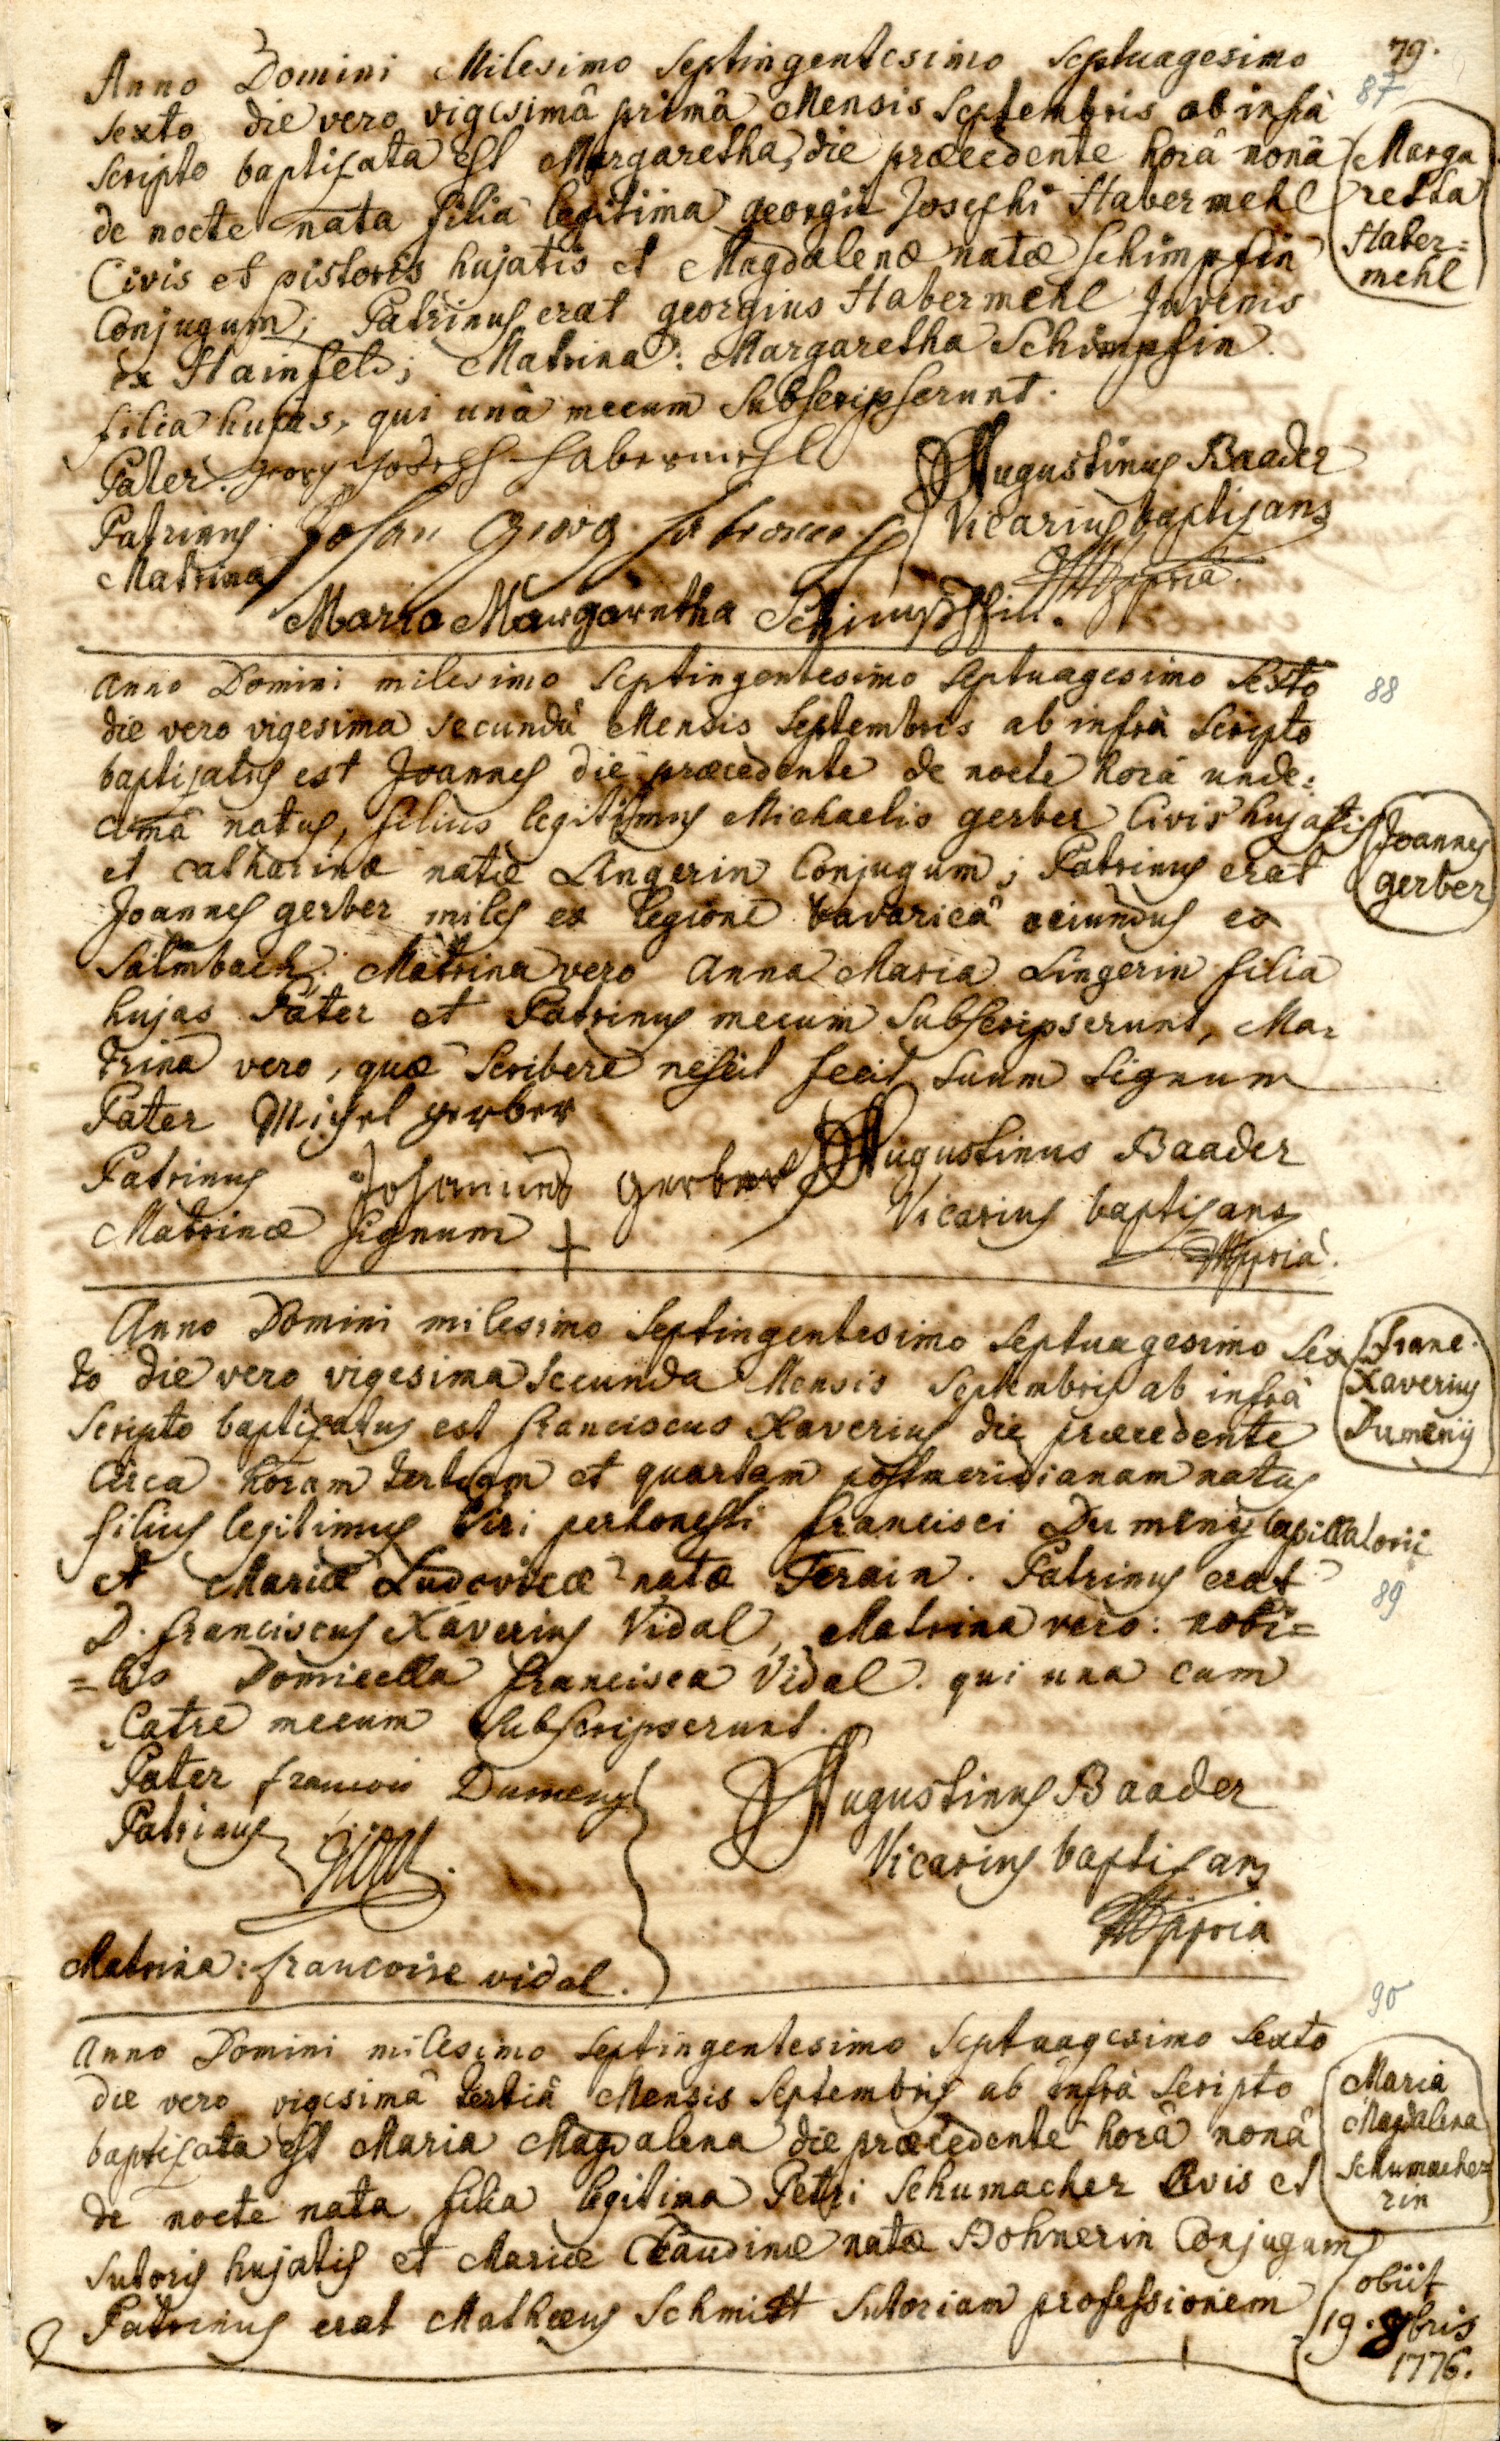 79.
Anno Domini Milesimo Septingentesimo Septuagesimo
87
sexto die vero vigesimâ primâ Mensis Septembris ab infrà
scripto baptisata est Margaretha, die præcedente horâ nonâ
de nocte nata filia legitima georgii Josephi Habermehl
Civis et pistoris hujatis et Magdalenæ natæ Schimpfin
Conjugum; Patrinus erat georgius Habermehl Juvenis
ex Hainfeld; Matrina: Margaretha Schimpfin
filia hujas, qui unà mecum Subscripserunt.
Marga
retha
Haber=
mehl
Pater. georg Joseph Habermehl
Patrinus. Johan Georg
Matrina
Maria Margaretha Schimpffin.
Augustinus Baader
Vicarius baptisans
Mppria.
Anno Domini milesimo Septingentesimo Septuagesimo Sexto
88
die vero vigesima secundâ Mensis Septembris ab infrà Scripto
baptisatus est Joannes die præcedente de nocte horâ unde=
cimâ natus, filius legitimus Michaelis gerber Civis hujatis
et catharinæ natæ Lingerin Conjugum; Patrinus erat
Joannes gerber miles ex legione bavaricâ oriundus ex
Salmbach: Matrina vero Anna Maria Lingerin filia
hujas Pater et Patrinus mecum Subscripserunt, Ma=
trina vero, quæ Scribere nescit fecit Suum Signum
Joannes
gerber
Pater Michel gerber
Patrinus Johannes gerber
Matrinæ signum +
Augustinus Baader
Vicarius baptisans
Mppria.
Anno Domini milesimo Septingentesimo Septuagesimo Sex=
to die vero vigesima Secunda Mensis Septembris ab infrà
Scripto baptisatus est franciscus Xaverius die præcedente
Circa horam tertiam et quartam postmeridianam natus
filius legitimus Viri perhonesti francisci Dumeny Capillatorii
et Mariæ Ludovicæ natæ Ferain. Patrinus erat
D. franciscus Xaverius Vidal, Matrina vero: nobi=
=lis Domicella francisca Vidal. qui una cum
Patre mecum Subscripserunt.
franc.
Xaverius
Dumenij
89
Pater francois Dumeny
Patrinus
Matrina: francoise vidal.
Augustinus Baader
Vicarius baptisans
Mppria
90
Anno Domini milesimo Septingentesimo Septuagesimo Sexto
die vero vigesimâ tertiâ Mensis Septembris ab infrà Scripto
baptisata est Maria Magdalena die præcedente horâ nonâ
de nocte nata filia legitima Petri Schumacher Civis et
Sutoris hujatis et Mariæ Claudinæ natæ Dohnerin Conjugum
Patrinus erat Mathæus Schmitt Sutoriam professionem
Maria
Magdalena
Schumacher=
rin
obiit
19. 8bris
1776.